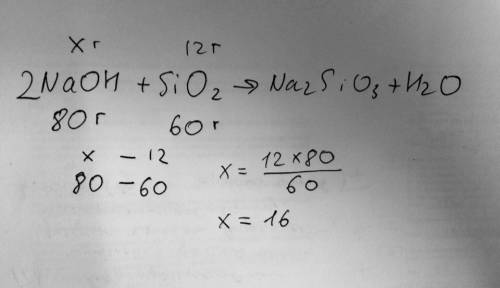 x г 12 г
2NaOH + SiO₂ → Na₂SiO₃ + H₂O
80 г 60 г
x – 12
80 – 60
x = 12 × 80 / 60
x = 16